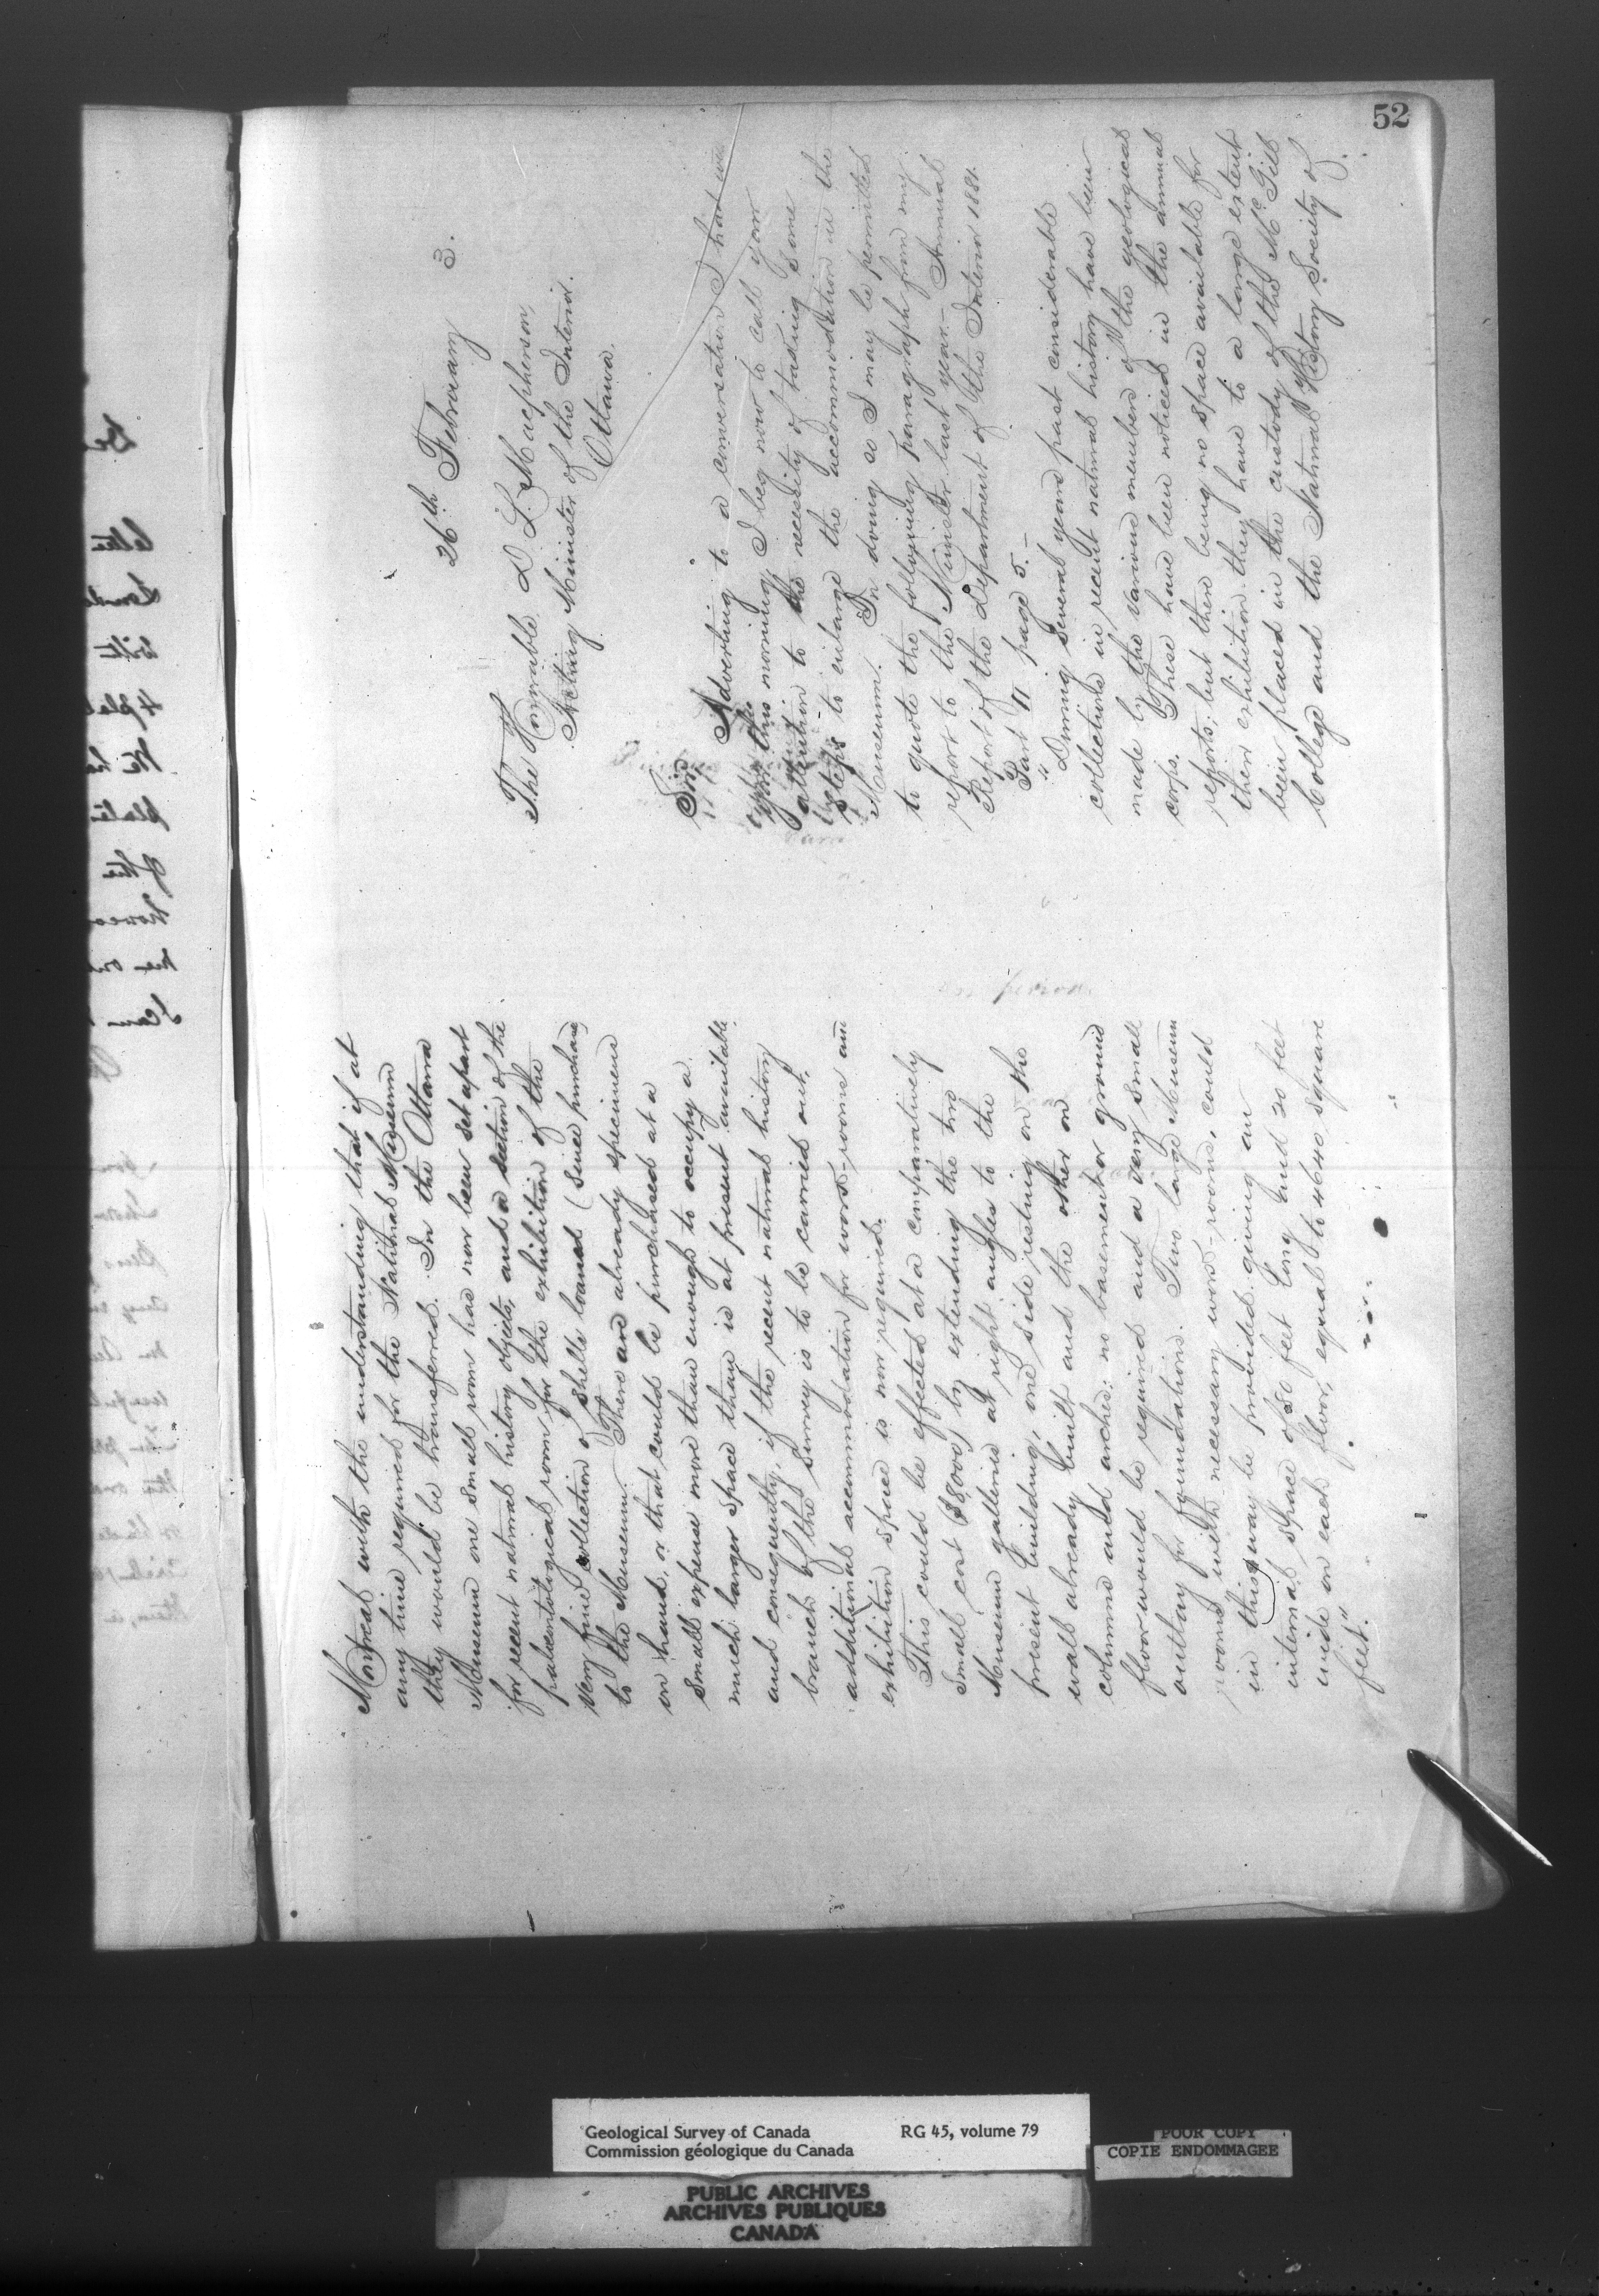 52
26th February 3.
The Honorable D. L. Macpherson,
Acting Minister of the Interior.
Ottawa.
Sir,
Adverting to a conversation I had with
you this morning, I beg now to call your
attention to the necessity of taking some
steps to enlarge the accommodation in the
Museum. In doing so I may be permitted
to quote the following paragraph from my
report to the Minister last year.— Annual
Report of the Department of the Interior 1881.
Part II page 5.—
"During several years past considerable
collections in recent natural history have been
made by the various members of the geological
corps. These have been noticed in the annual
reports; but there being no space available for
their exhibition they have to a large extent
been placed in the custody of the McGill
College and the Natural History Society of
Montreal with the understanding that if at
any time required for the National Museum
they would be transferred. In the Ottawa
Museum one small room has now been set apart
for recent natural history objects, and a section of the
palæontological room for the exhibition of the
very fine collection of shells loaned (since purchased)
to the Museum. There are already specimens
on hand, or that could be purchased at a
small expense more than enough to occupy a
much larger space than is at present available
and consequently, if the recent natural history
branch of the Survey is to be carried out,
additional accommodation for work-rooms and
exhibition space is now required.
This could be effected at a comparatively
small cost ($8000) by extending the two
Museum galleries at right angles to the
present building, one side resting on the
wall already built and the other on
columns and arches; no basement or ground
floor would be required and a very small
outlay for foundations. Two large Museum
rooms with necessary work-rooms, could
in this way be provided giving an
internal space of 80 feet long and 20 feet
wide on each floor, equal to 4640 square
feet."
Geological Survey of Canada RG 45, volume 79
Commission géologique du Canada
POOR COPY
COPIE ENDOMMAGEE
PUBLIC ARCHIVES
ARCHIVES PUBLIQUES
CANADA